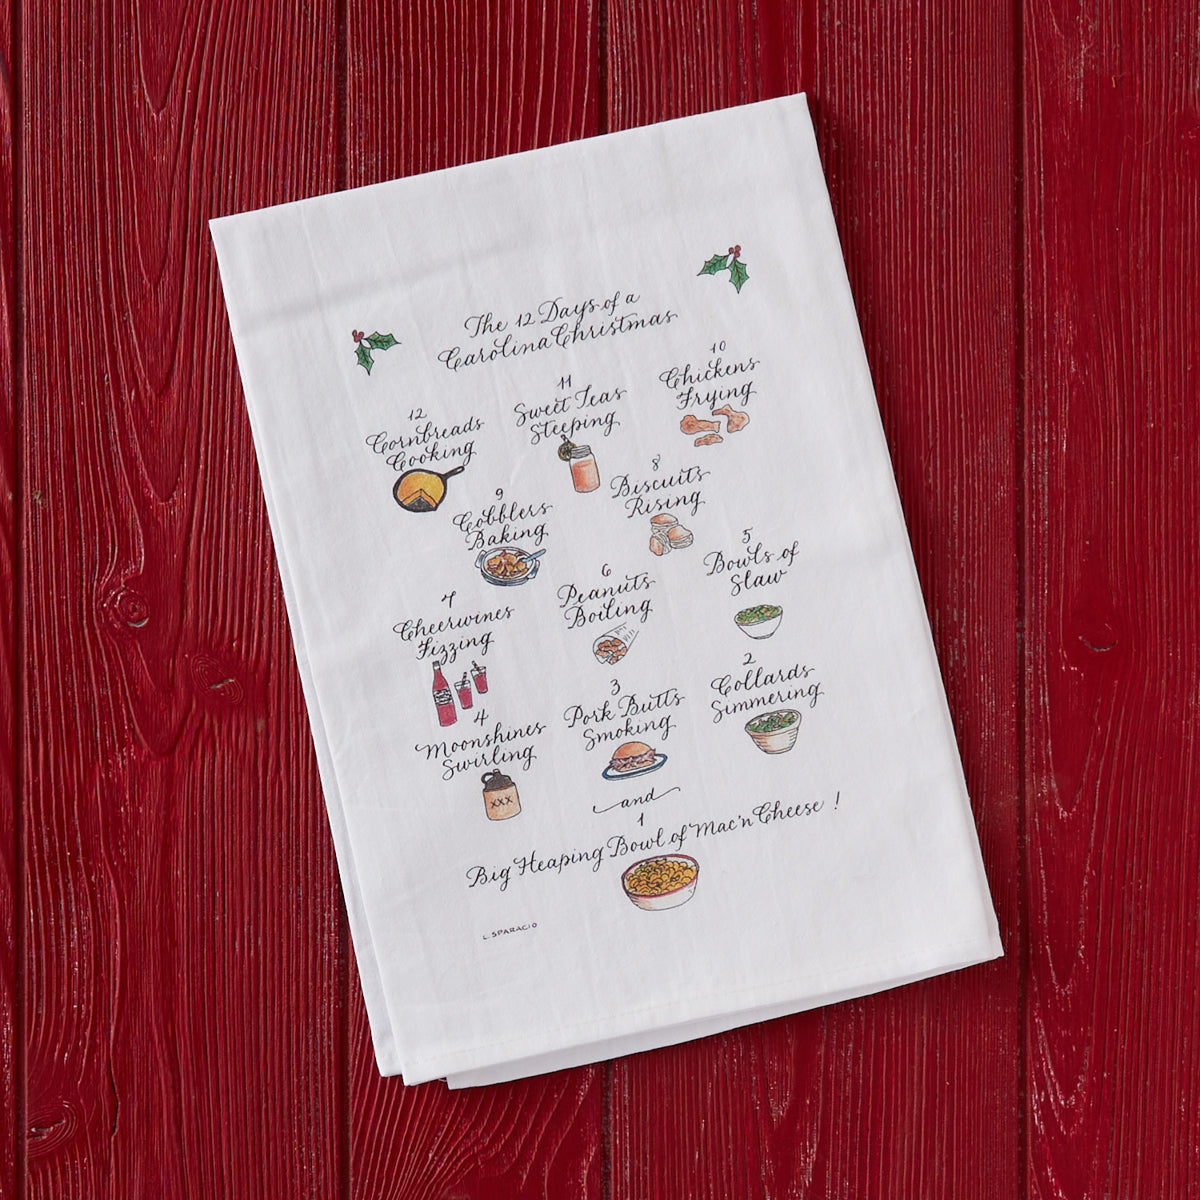 The 12 Days of a
Carolina Christmas
12
Cornbreads
Cooking
11
Sweet Teas
Steeping
10
Chickens
Frying
9
Cobblers
Baking
8
Biscuits
Rising
7
Cheerwines
Fizzing
6
Peanuts
Boiling
5
Bowls of
Slaw
4
Moonshines
Swirling
XXX
3
Pork Butts
Smoking
2
Collards
Simmering
and
1
Big Heaping Bowl of Mac'n Cheese!
L. SPARACIO